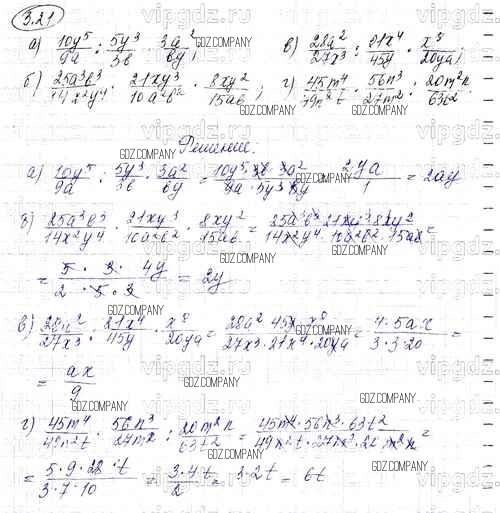 3.21
а) 10y⁵/9a : 5y³/3b · 3a²/by; в) 28a²/27x³ : 21x⁴/45y · x⁸/20ya;
б) 25a³b³/14x²y⁴ · 21xy³/10a²b² · 8xy²/15ab; г) 45m⁴/49n²t · 56n³/27m² : 20m²n/63t².
Решение:
а) 10y⁵/9a : 5y³/3b · 3a²/by = 2ya/1 = 2ay
б) 25a³b³/14x²y⁴ · 21xy³/10a²b² · 8xy²/15ab = 25a³b³·21xy³·8xy²/14x²y⁴·10a²b²·15ab =
= 5·3·4y/2·5·3 = 2y
в) 28a²/27x³ : 21x⁴/45y · x⁸/20ya = 28a²·45y·x⁸/27x³·21x⁴·20ya = 4·5a·x/3·3·20 =
= ax/9
г) 45m⁴/49n²t · 56n³/27m² : 20m²n/63t² = 45m⁴·56n³·63t²/49n²t·27m²·20m²n =
= 3·4·t/2 = 3·2t = 6t
GDZ.COMPANY
vipgdz.ru